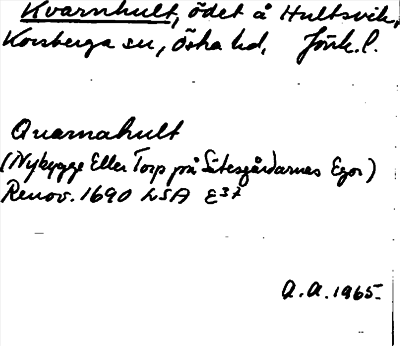 Kvarnhult, ödet å Hultsvik,
Korsberga sn, Östra hd, Jönk. l.
Quarnahult
(Nybygge Eller Torp på Sätesgårdarnes Egor)
Renov. 1690 LSA E37
A.A. 1965